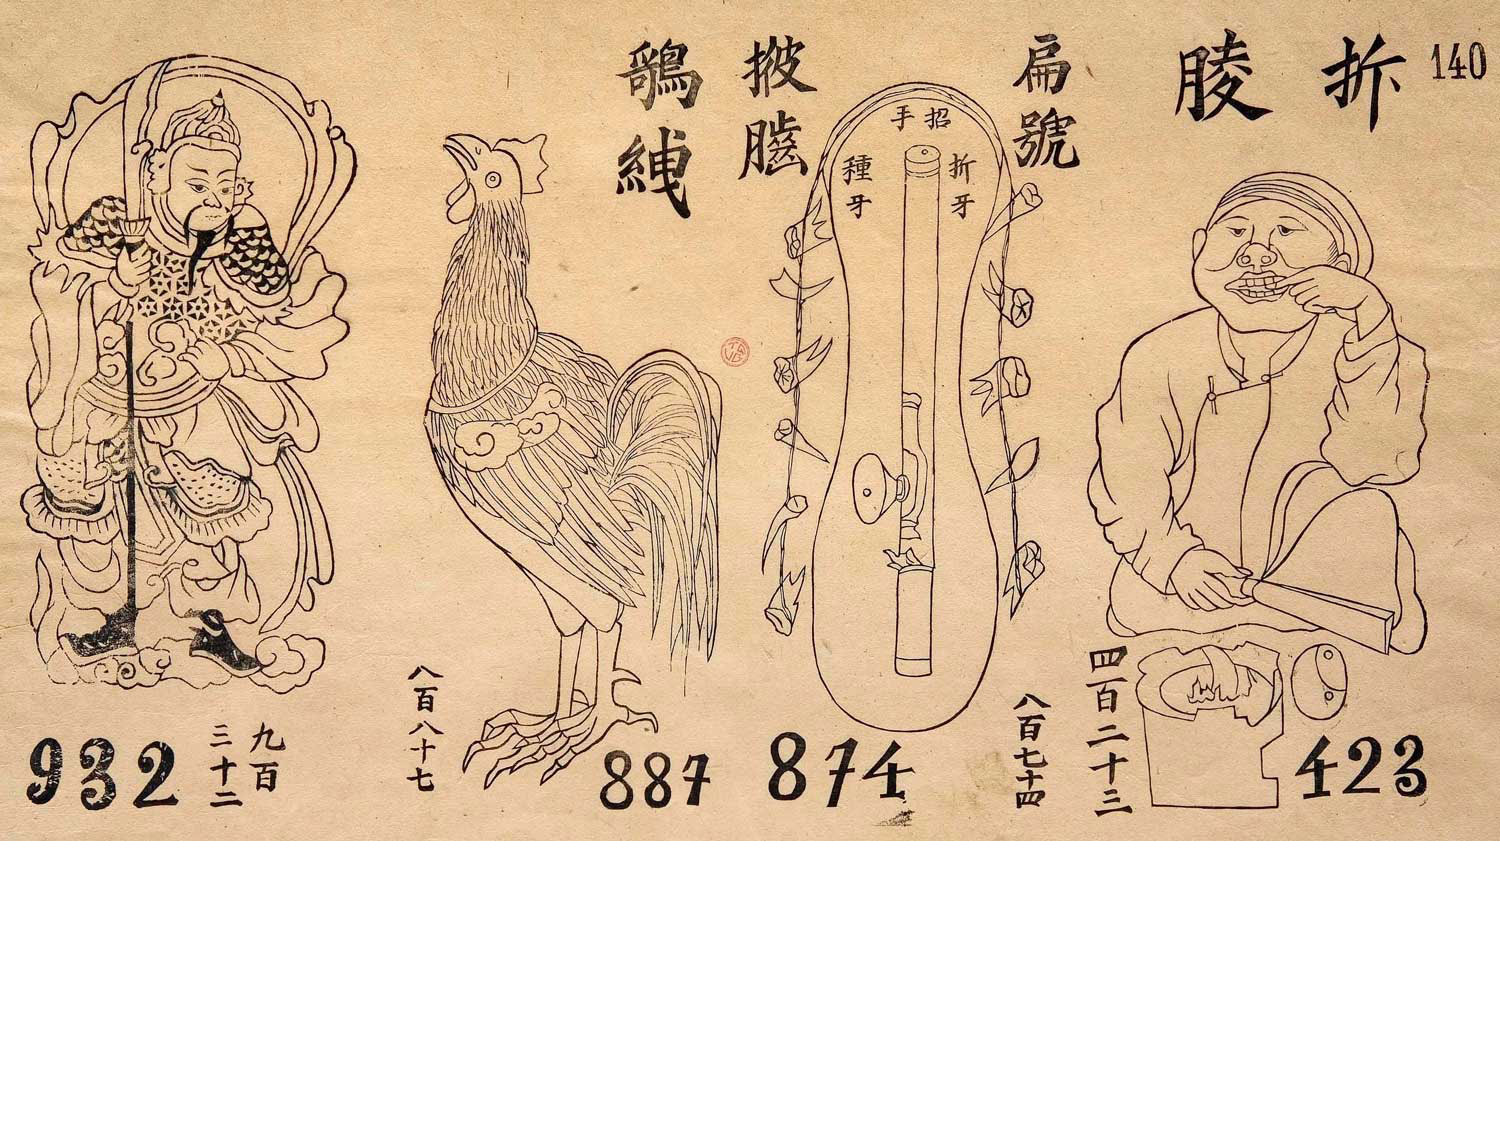 140
折𦝄
四百二十三
423
扁號
招手
折牙
種牙
八百七十四
874
八百八十七
887
九百
三十二
932